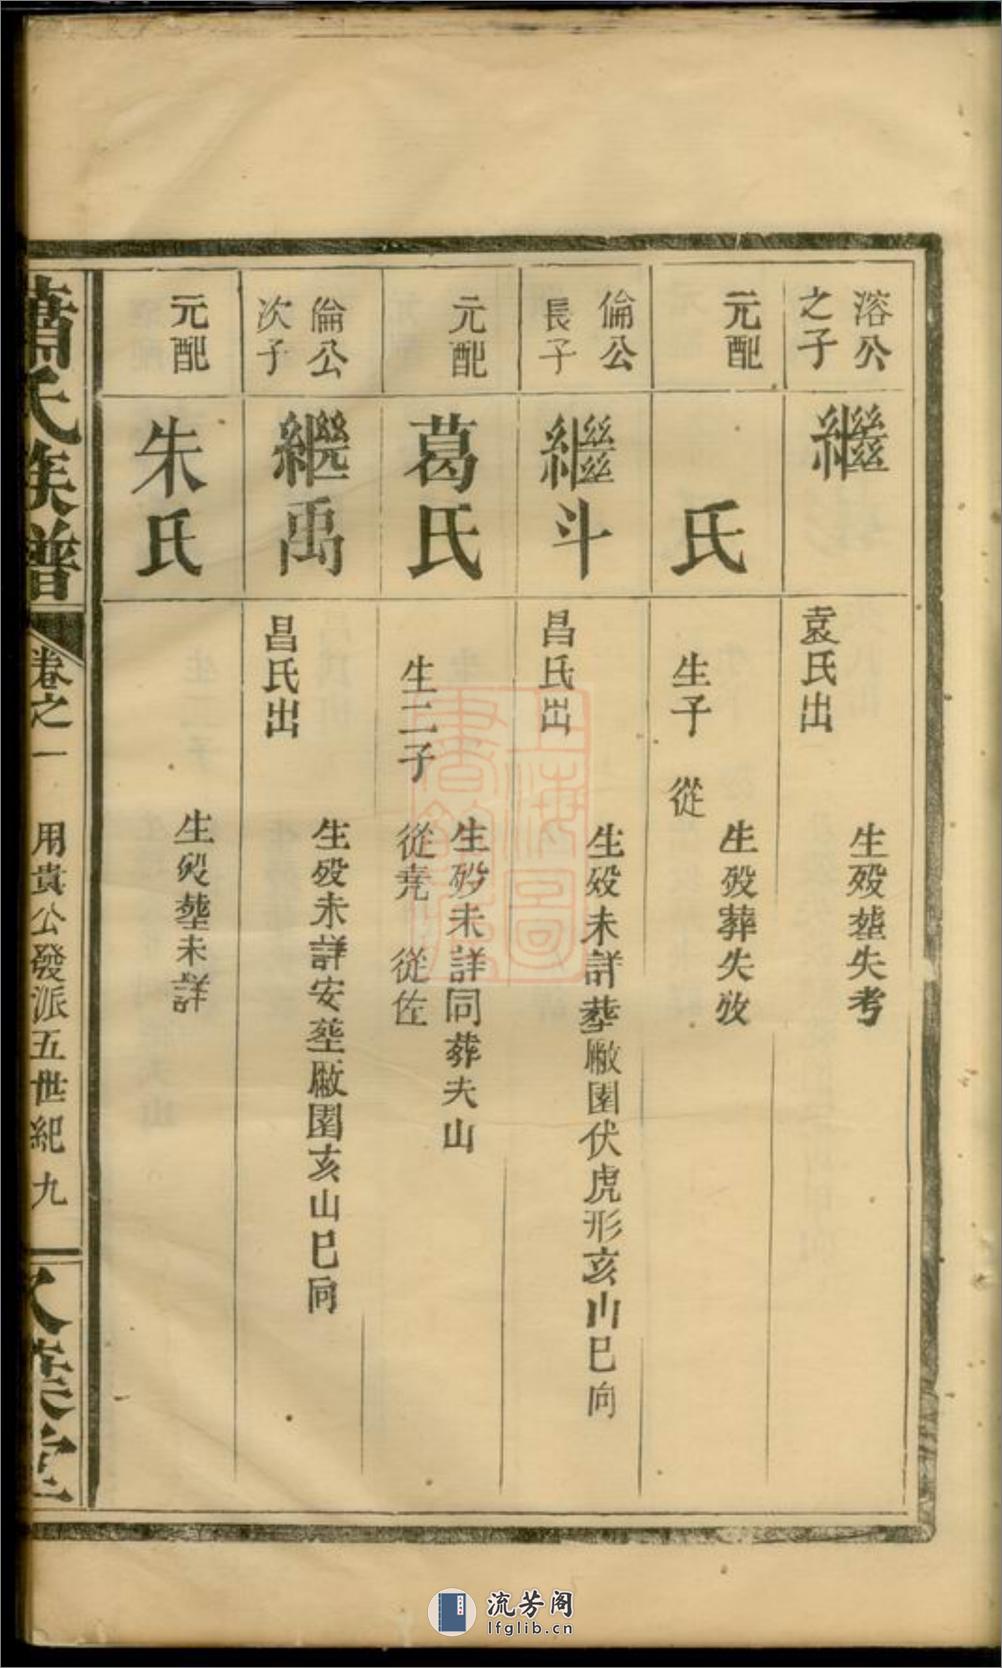 溶公
之子
繼
袁氏出
生殁塟失考
元配
氏
生子 從
生殁葬失攷
倫公
長子
繼斗
昌氏出
生殁未詳葬厫園伏虎形亥山巳向
元配
葛氏
生二子 從堯 從佐
生殁未詳同葬夫山
倫公
次子
繼禹
昌氏出
生殁未詳安塟厫園亥山巳向
元配
朱氏
生殁塟未詳
蕭氏族譜
卷之一
用貴公發派五世紀 九
上海圖書館藏
流芳阁
lfglib.cn